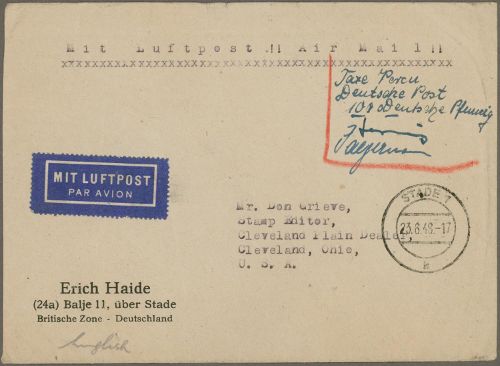 Mit Luftpost !! Air Mail !!
xxxxxxxxxxxxxxxxxxxxxxxxxxxxxxxxxxxxxxxxxxxxx
Taxe Percu
Deutsche Post
100 Deutsche Pfennig
MIT LUFTPOST
PAR AVION
STADE 1
23.6.48.-17
Mr. Don Grieve,
Stamp Editor,
Cleveland Plain Dealer,
Cleveland, Ohio,
U. S. A.
Erich Haide
(24a) Balje 11, über Stade
Britische Zone - Deutschland